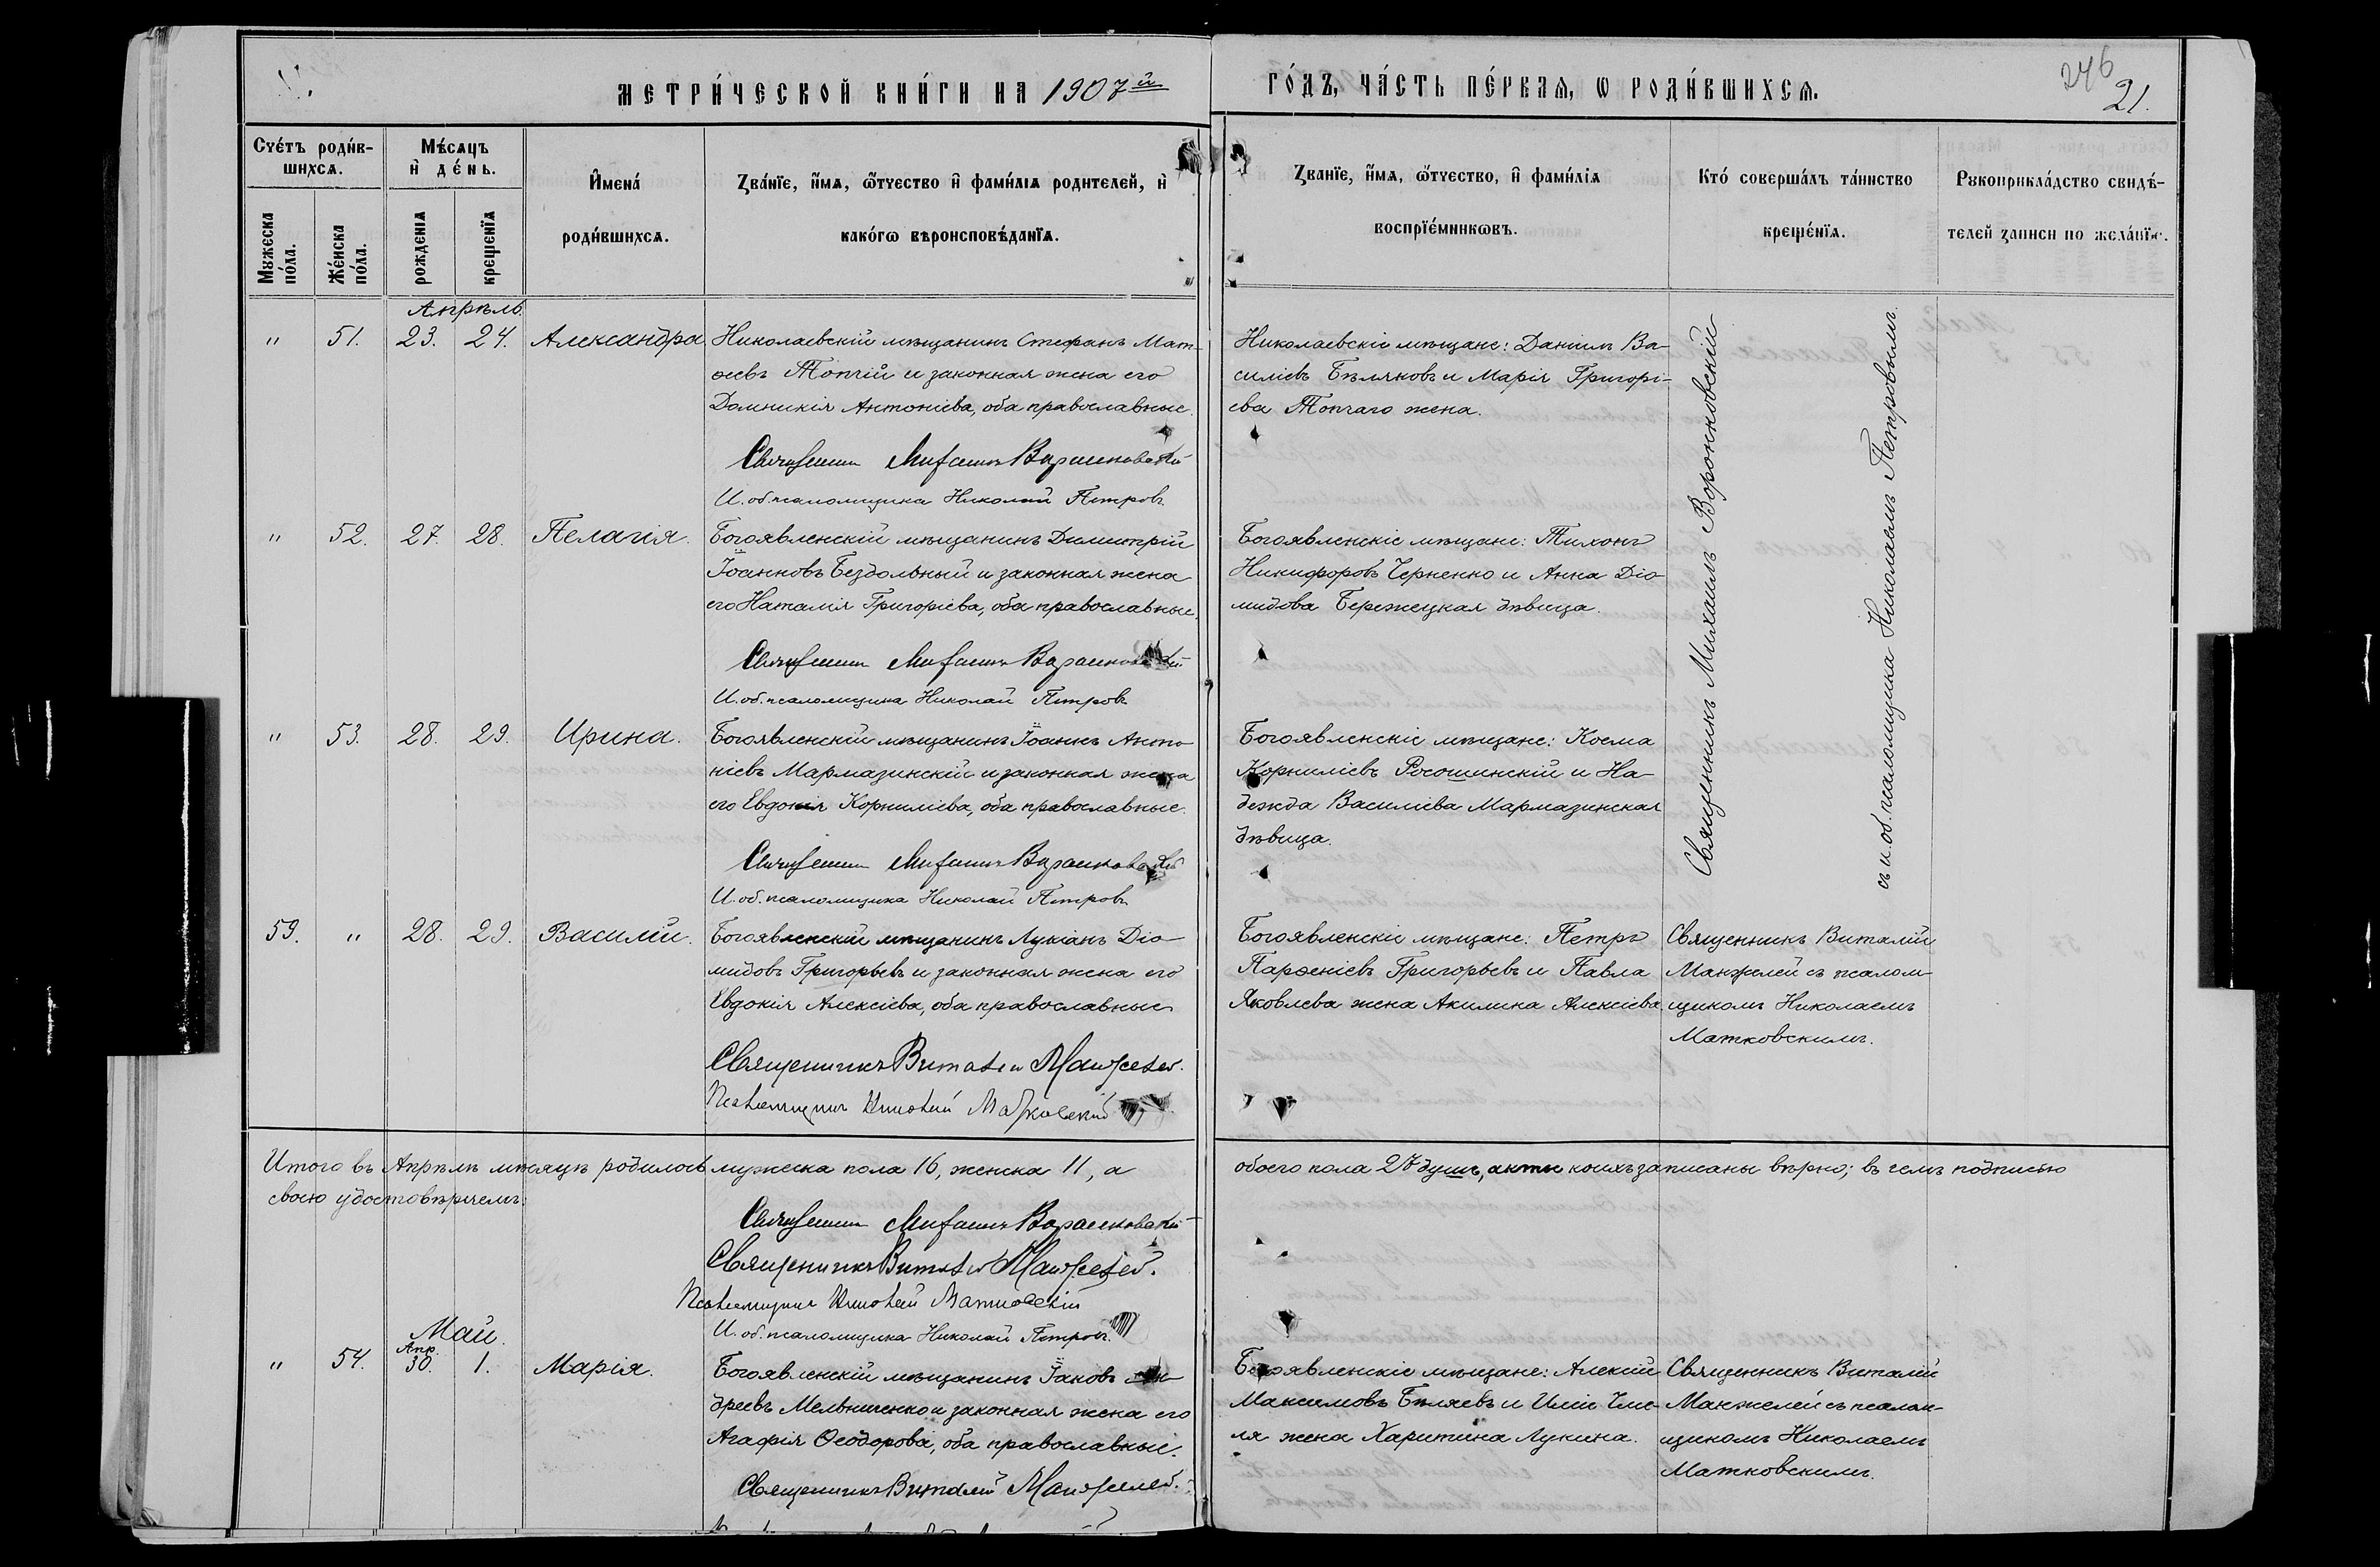 МЕТРИ́ЧЕСКОЙ КНИ́ГИ НА 1907й
ГО́ДЪ, ЧА́СТЬ ПЕ́РВАѦ, Ѡ РОДИ́ВШИХСѦ.
246
21.
Сче́тъ роди́в-
шихсѧ.
Мꙋжеска
по́ла.
Же́нска
по́ла.
Мѣ́сѧцъ
и҆ де́нь.
рожденїѧ
крещенїѧ
И҆мена́
роди́вшихсѧ.
Ꙁва́нїе, и҆́мѧ, ѻ҆́тчество и҆ фами́лїѧ родителей, и҆
како́гѡ вѣроисповѣ́данїѧ.
Ꙁванїе, и҆́мѧ, ѻ҆́тчество, и҆ фами́лїѧ
воспрїе́мникѡвъ.
Кто́ соверша́лъ та́инство
креще́нїѧ.
Рꙋкоприкла́дство свидѣ́-
телей ꙁаписи по жела́нїю.
Апрѣль.
" 51. 23. 24. Александра
Николаевскій мѣщанинъ Стефанъ Мат-
ѳеевъ Топчій и законная жена его
Домникія Антоніева, оба православные.
Священникъ Михаилъ Воронковскій
И. об. псаломщика Николай Петровъ.
Николаевскіе мѣщане: Даніилъ Ва-
силіевъ Бѣляковъ и Марія Григорі-
ева Топчаго жена.
Священникъ Михаилъ Воронковскій
съ и. об. псаломщика Николаемъ Петровымъ.
" 52. 27. 28. Пелагія.
Богоявленскій мѣщанинъ Димитрій
Іоанновъ Бездольный и законная жена
его Наталія Григоріева, оба православные.
Священникъ Михаилъ Воронковскій
И. об. псаломщика Николай Петровъ
Богоявленскіе мѣщане: Тихонъ
Никифоровъ Черненко и Анна Діо-
мидова Бережецкая дѣвица.
" 53. 28. 29. Ирина.
Богоявленскій мѣщанинъ Іоаннъ Анто-
ніевъ Мармазинскій и законная жена
его Евдокія Корниліева, оба православные.
Священникъ Михаилъ Воронковскій
И. об. псаломщика Николай Петровъ
Богоявленскіе мѣщане: Косма
Корниліевъ Росошинскій и На-
дежда Василіева Мармазинская
дѣвица.
59. " 28. 29. Василій.
Богоявленскій мѣщанинъ Лукіанъ Діо-
мидовъ Григорьевъ и законная жена его
Евдокія Алексіева, оба православные
Священникъ Виталій Манжелей.
Псаломщикъ Николай Матковскій
Богоявленскіе мѣщане: Петръ
Парѳеніевъ Григорьевъ и Павла
Яковлева жена Акилина Алексіева.
Священникъ Виталій
Манжелей съ псалом-
щикомъ Николаемъ
Матковскимъ.
Итого въ Апрѣлѣ мѣсяцѣ родилось мужеска пола 16, женска 11, а обоего пола 27 душъ, акты коихъ записаны вѣрно; въ чемъ подписью
своею удостовѣряемъ:
Священникъ Михаилъ Воронковскій
Священникъ Виталій Манжелей.
Псаломщикъ Николай Матковскій
И. об. псаломщика Николай Петровъ.
Май.
Апр.
" 54. 30. 1. Марія.
Богоявленскій мѣщанинъ Іаковъ Ан-
дреевъ Мельниченко и законная жена его
Агафія Ѳеодорова, оба православные.
Священникъ Виталій Манжелей.
Богоявленскіе мѣщане: Алексій
Максимовъ Бѣляевъ и Иліи
жена Харитина Лукина.
Священникъ Виталій
Манжелей съ псалом-
щикомъ Николаемъ
Матковскимъ.